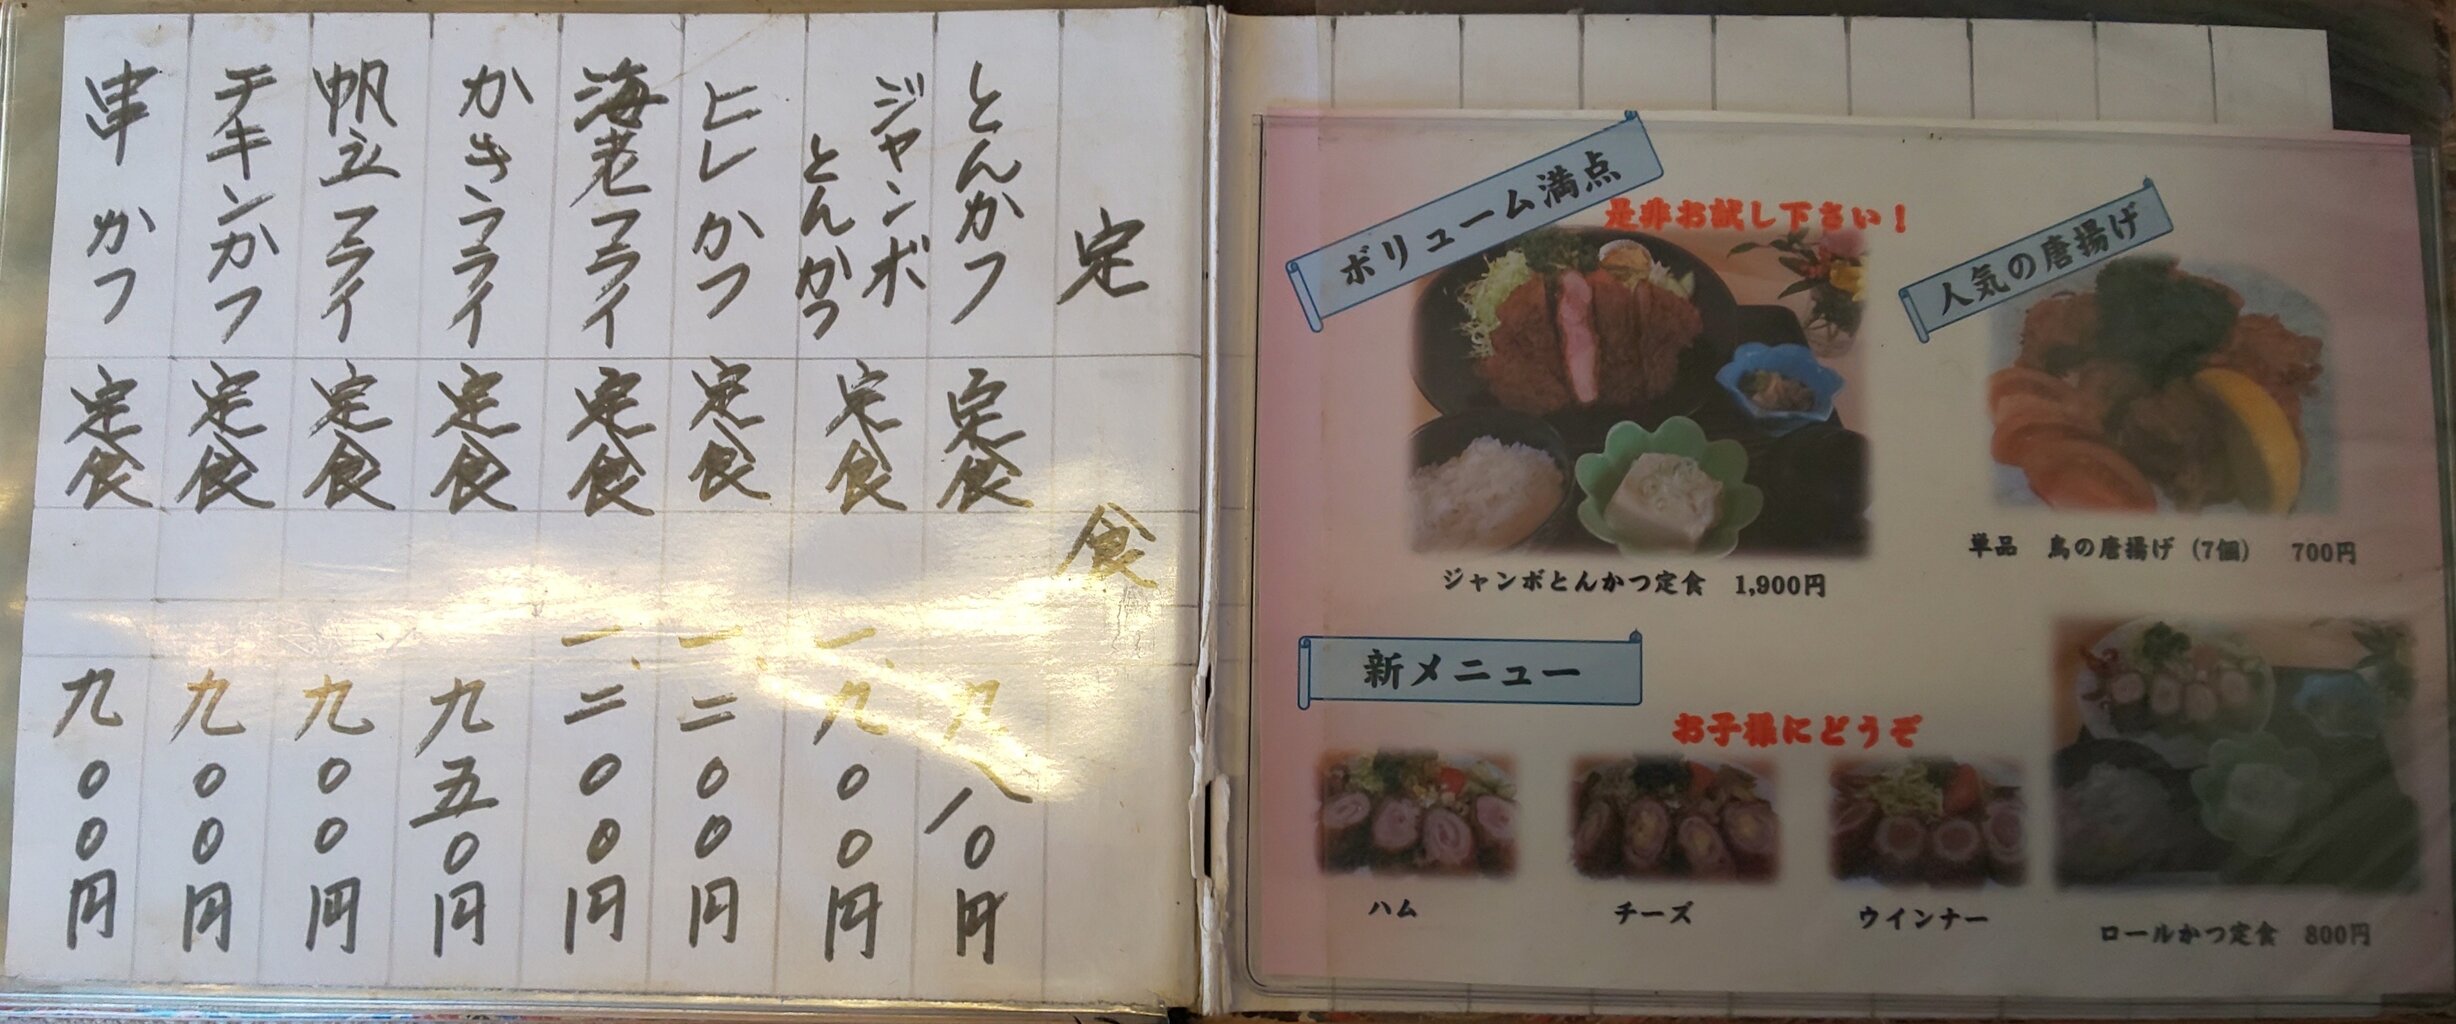 定食
とんかつ定食 九八〇円
ジャンボ
とんかつ定食 一、九〇〇円
ヒレかつ定食 一、二〇〇円
海老フライ定食 一、二〇〇円
かきフライ定食 九五〇円
帆立フライ定食 九〇〇円
チキンかつ定食 九〇〇円
串かつ定食 九〇〇円
ボリューム満点
是非お試し下さい！
ジャンボとんかつ定食 1,900円
人気の唐揚げ
単品 鳥の唐揚げ（7個） 700円
新メニュー
お子様にどうぞ
ハム
チーズ
ウインナー
ロールかつ定食 800円